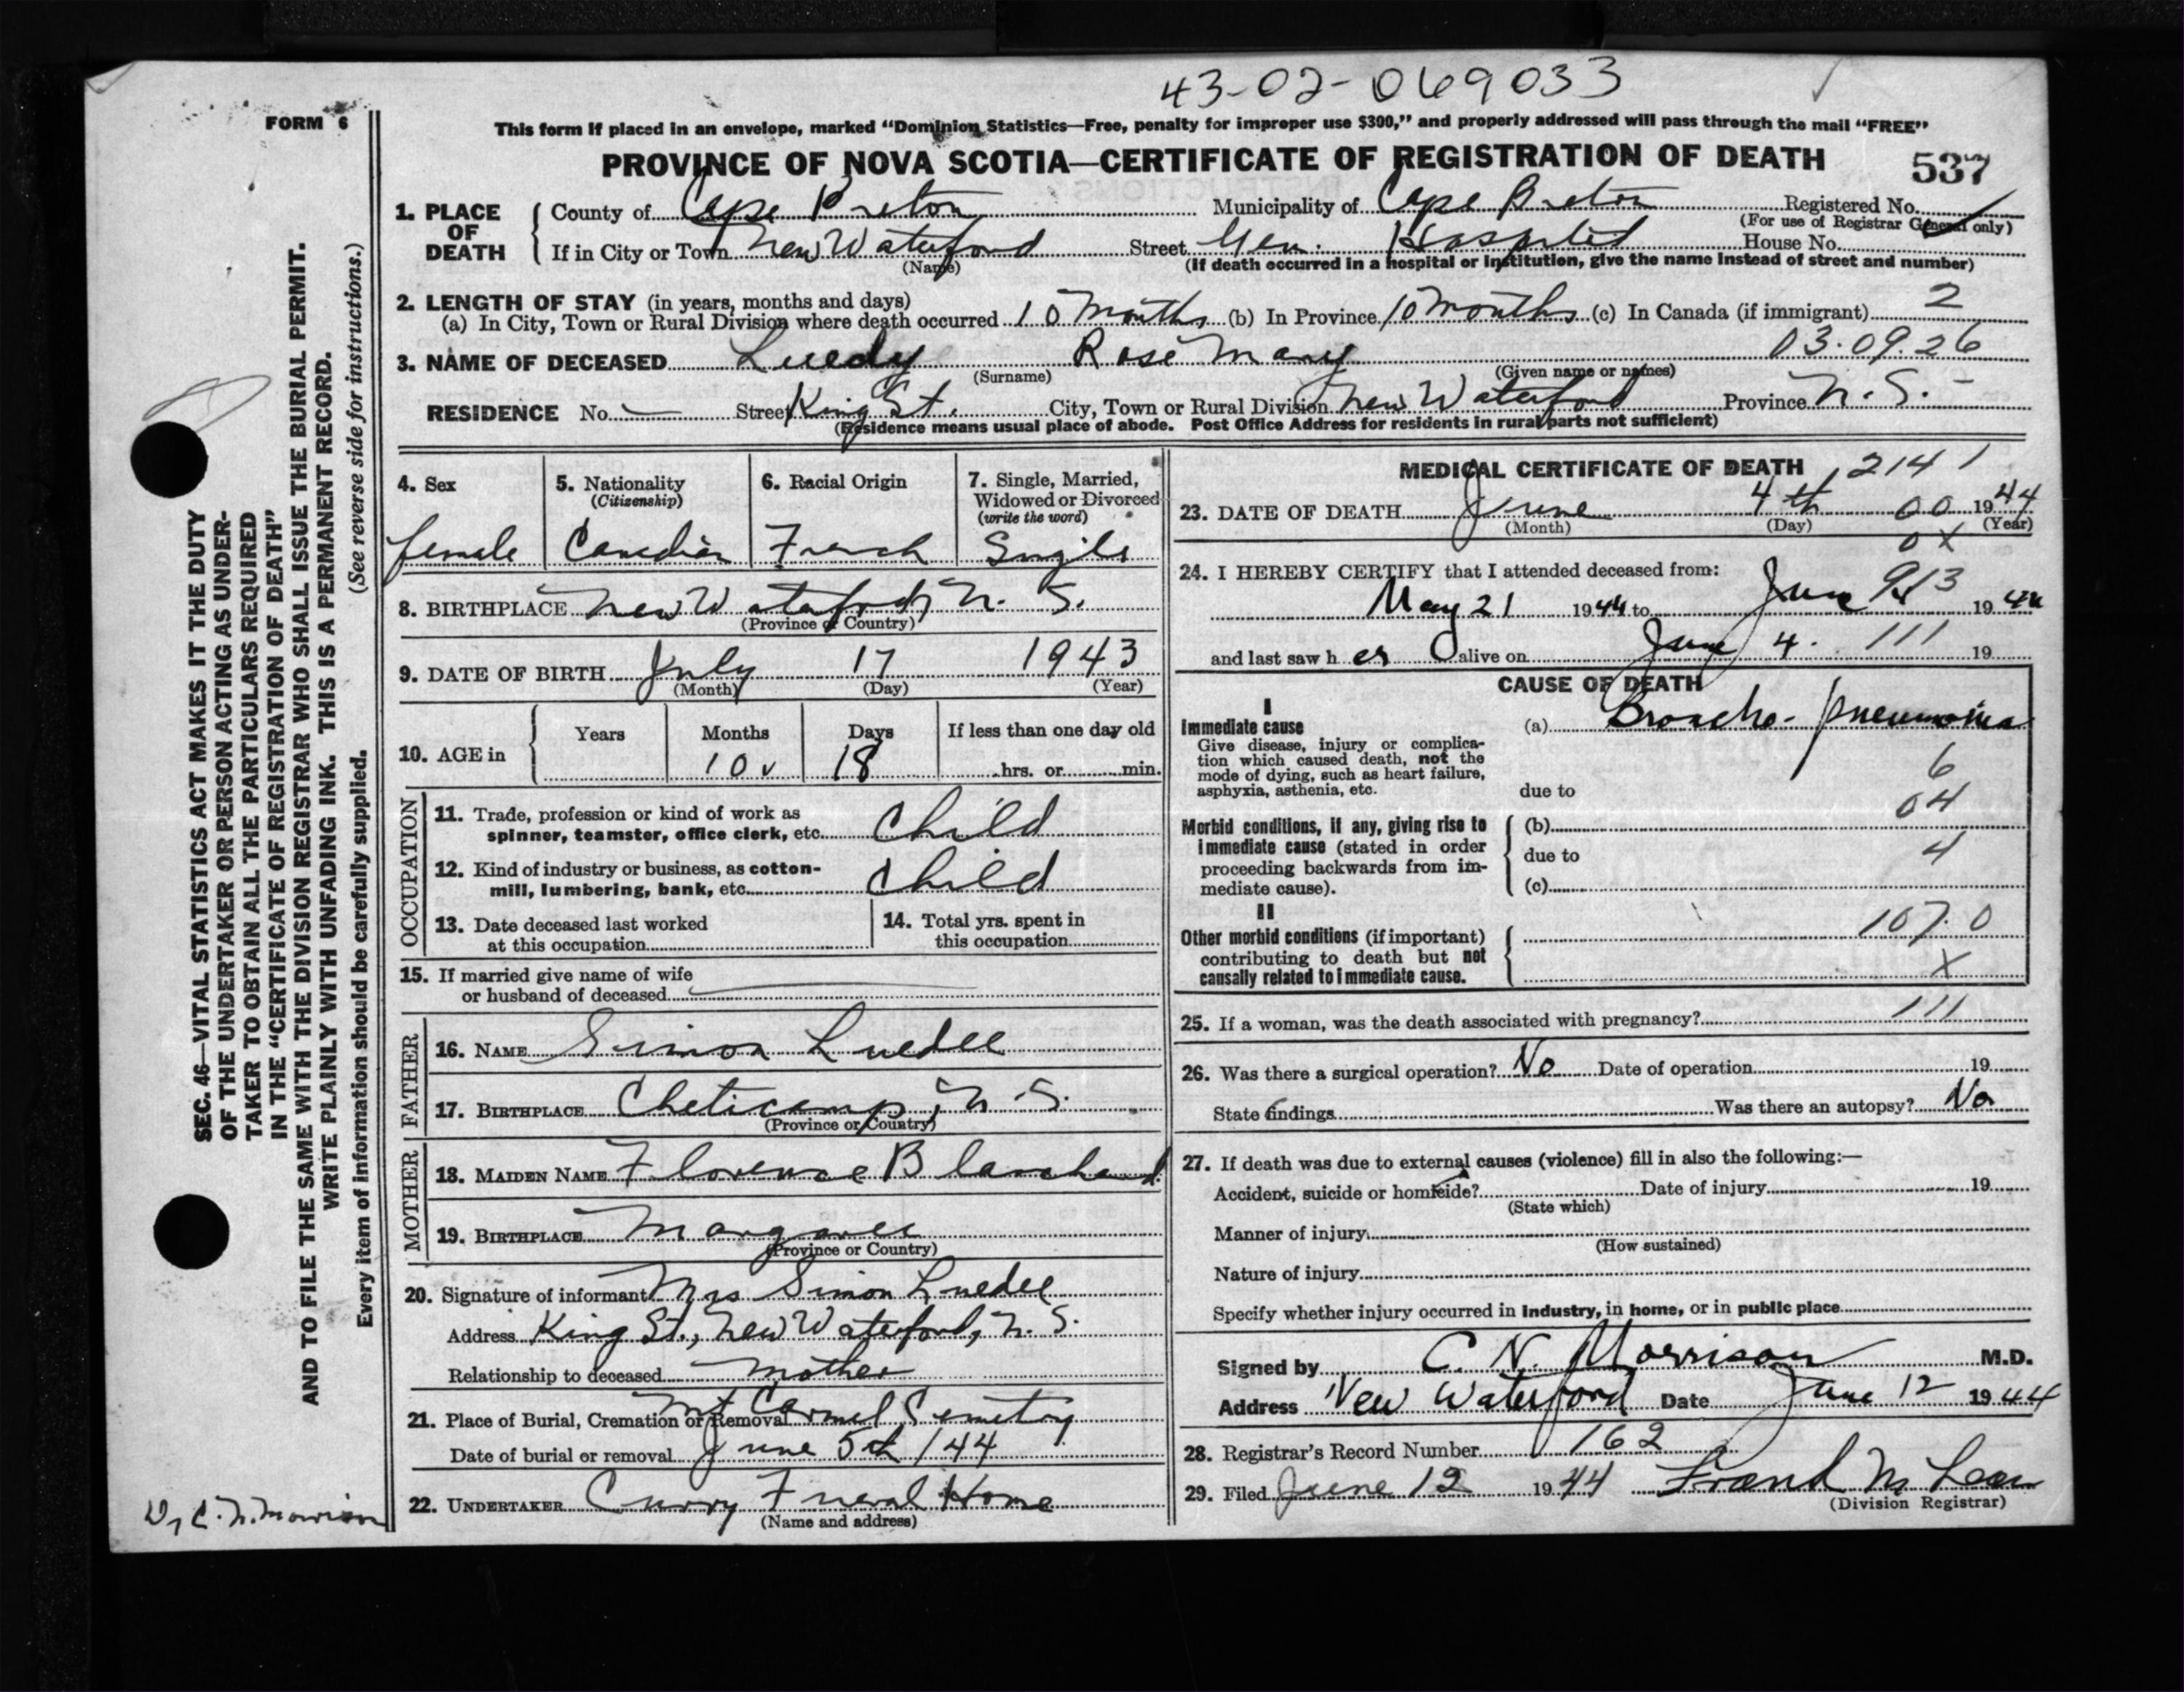 43-02-069033
FORM 6
This form if placed in an envelope, marked “Dominion Statistics—Free, penalty for improper use $300,” and properly addressed will pass through the mail “FREE”
PROVINCE OF NOVA SCOTIA—CERTIFICATE OF REGISTRATION OF DEATH 537
1. PLACE OF DEATH County of Cape Breton Municipality of Cape Breton Registered No.
(For use of Registrar General only)
If in City or Town New Waterford Street Gen. Hospital House No.
(Name) (If death occurred in a hospital or institution, give the name instead of street and number)
2. LENGTH OF STAY (in years, months and days)
(a) In City, Town or Rural Division where death occurred 10 Months (b) In Province 10 months (c) In Canada (if immigrant) 2
03.09.26
3. NAME OF DECEASED Luedy Rose Mary
(Surname) (Given name or names)
RESIDENCE No. — Street King St. City, Town or Rural Division New Waterford Province N. S. -
(Residence means usual place of abode. Post Office Address for residents in rural parts not sufficient)
4. Sex 5. Nationality (Citizenship) 6. Racial Origin 7. Single, Married, Widowed or Divorced (write the word)
female Canadian French Single
8. BIRTHPLACE New Waterford, N. S.
(Province or Country)
9. DATE OF BIRTH July 17 1943
(Month) (Day) (Year)
10. AGE in Years Months Days If less than one day old
10 18 hrs. or min.
OCCUPATION
11. Trade, profession or kind of work as
spinner, teamster, office clerk, etc. Child
12. Kind of industry or business, as cotton-
mill, lumbering, bank, etc. Child
13. Date deceased last worked
at this occupation
14. Total yrs. spent in
this occupation
15. If married give name of wife
or husband of deceased
FATHER
16. NAME Simon Luedee
17. BIRTHPLACE Cheticamp, N.S.
(Province or Country)
MOTHER
18. MAIDEN NAME Florence Blanchard
19. BIRTHPLACE Margaree
(Province or Country)
20. Signature of informant Mrs Simon Luedee
Address King St., New Waterford, N. S.
Relationship to deceased mother
21. Place of Burial, Cremation or Removal Mt Carmel Cemetery
Date of burial or removal June 5th /44
22. UNDERTAKER Curry Funeral Home
(Name and address)
MEDICAL CERTIFICATE OF DEATH 2141
23. DATE OF DEATH June 4th 00 1944
(Month) (Day) (Year)
0X
24. I HEREBY CERTIFY that I attended deceased from:
May 21 1944 to June 913 1944
and last saw her alive on June 4. 111 19
CAUSE OF DEATH
I
Immediate cause (a) Broncho-pneumonia
Give disease, injury or complica-
tion which caused death, not the
mode of dying, such as heart failure,
asphyxia, asthenia, etc.
6
due to
04
Morbid conditions, if any, giving rise to
immediate cause (stated in order
proceeding backwards from im-
mediate cause).
(b)
due to 4
(c)
II
Other morbid conditions (if important)
contributing to death but not
causally related to immediate cause.
107.0
X
25. If a woman, was the death associated with pregnancy? 111
26. Was there a surgical operation? No Date of operation 19
State findings Was there an autopsy? No
27. If death was due to external causes (violence) fill in also the following:—
Accident, suicide or homicide? Date of injury 19
(State which)
Manner of injury
(How sustained)
Nature of injury
Specify whether injury occurred in industry, in home, or in public place
Signed by C. N. Morrison M.D.
Address New Waterford Date June 12 1944
28. Registrar's Record Number 162
29. Filed June 12 1944
(Division Registrar)
SEC. 46—VITAL STATISTICS ACT MAKES IT THE DUTY
OF THE UNDERTAKER OR PERSON ACTING AS UNDER-
TAKER TO OBTAIN ALL THE PARTICULARS REQUIRED
IN THE “CERTIFICATE OF REGISTRATION OF DEATH”
AND TO FILE THE SAME WITH THE DIVISION REGISTRAR WHO SHALL ISSUE THE BURIAL PERMIT.
WRITE PLAINLY WITH UNFADING INK. THIS IS A PERMANENT RECORD.
Every item of information should be carefully supplied. (See reverse side for instructions.)
Dr C. N. Morrison